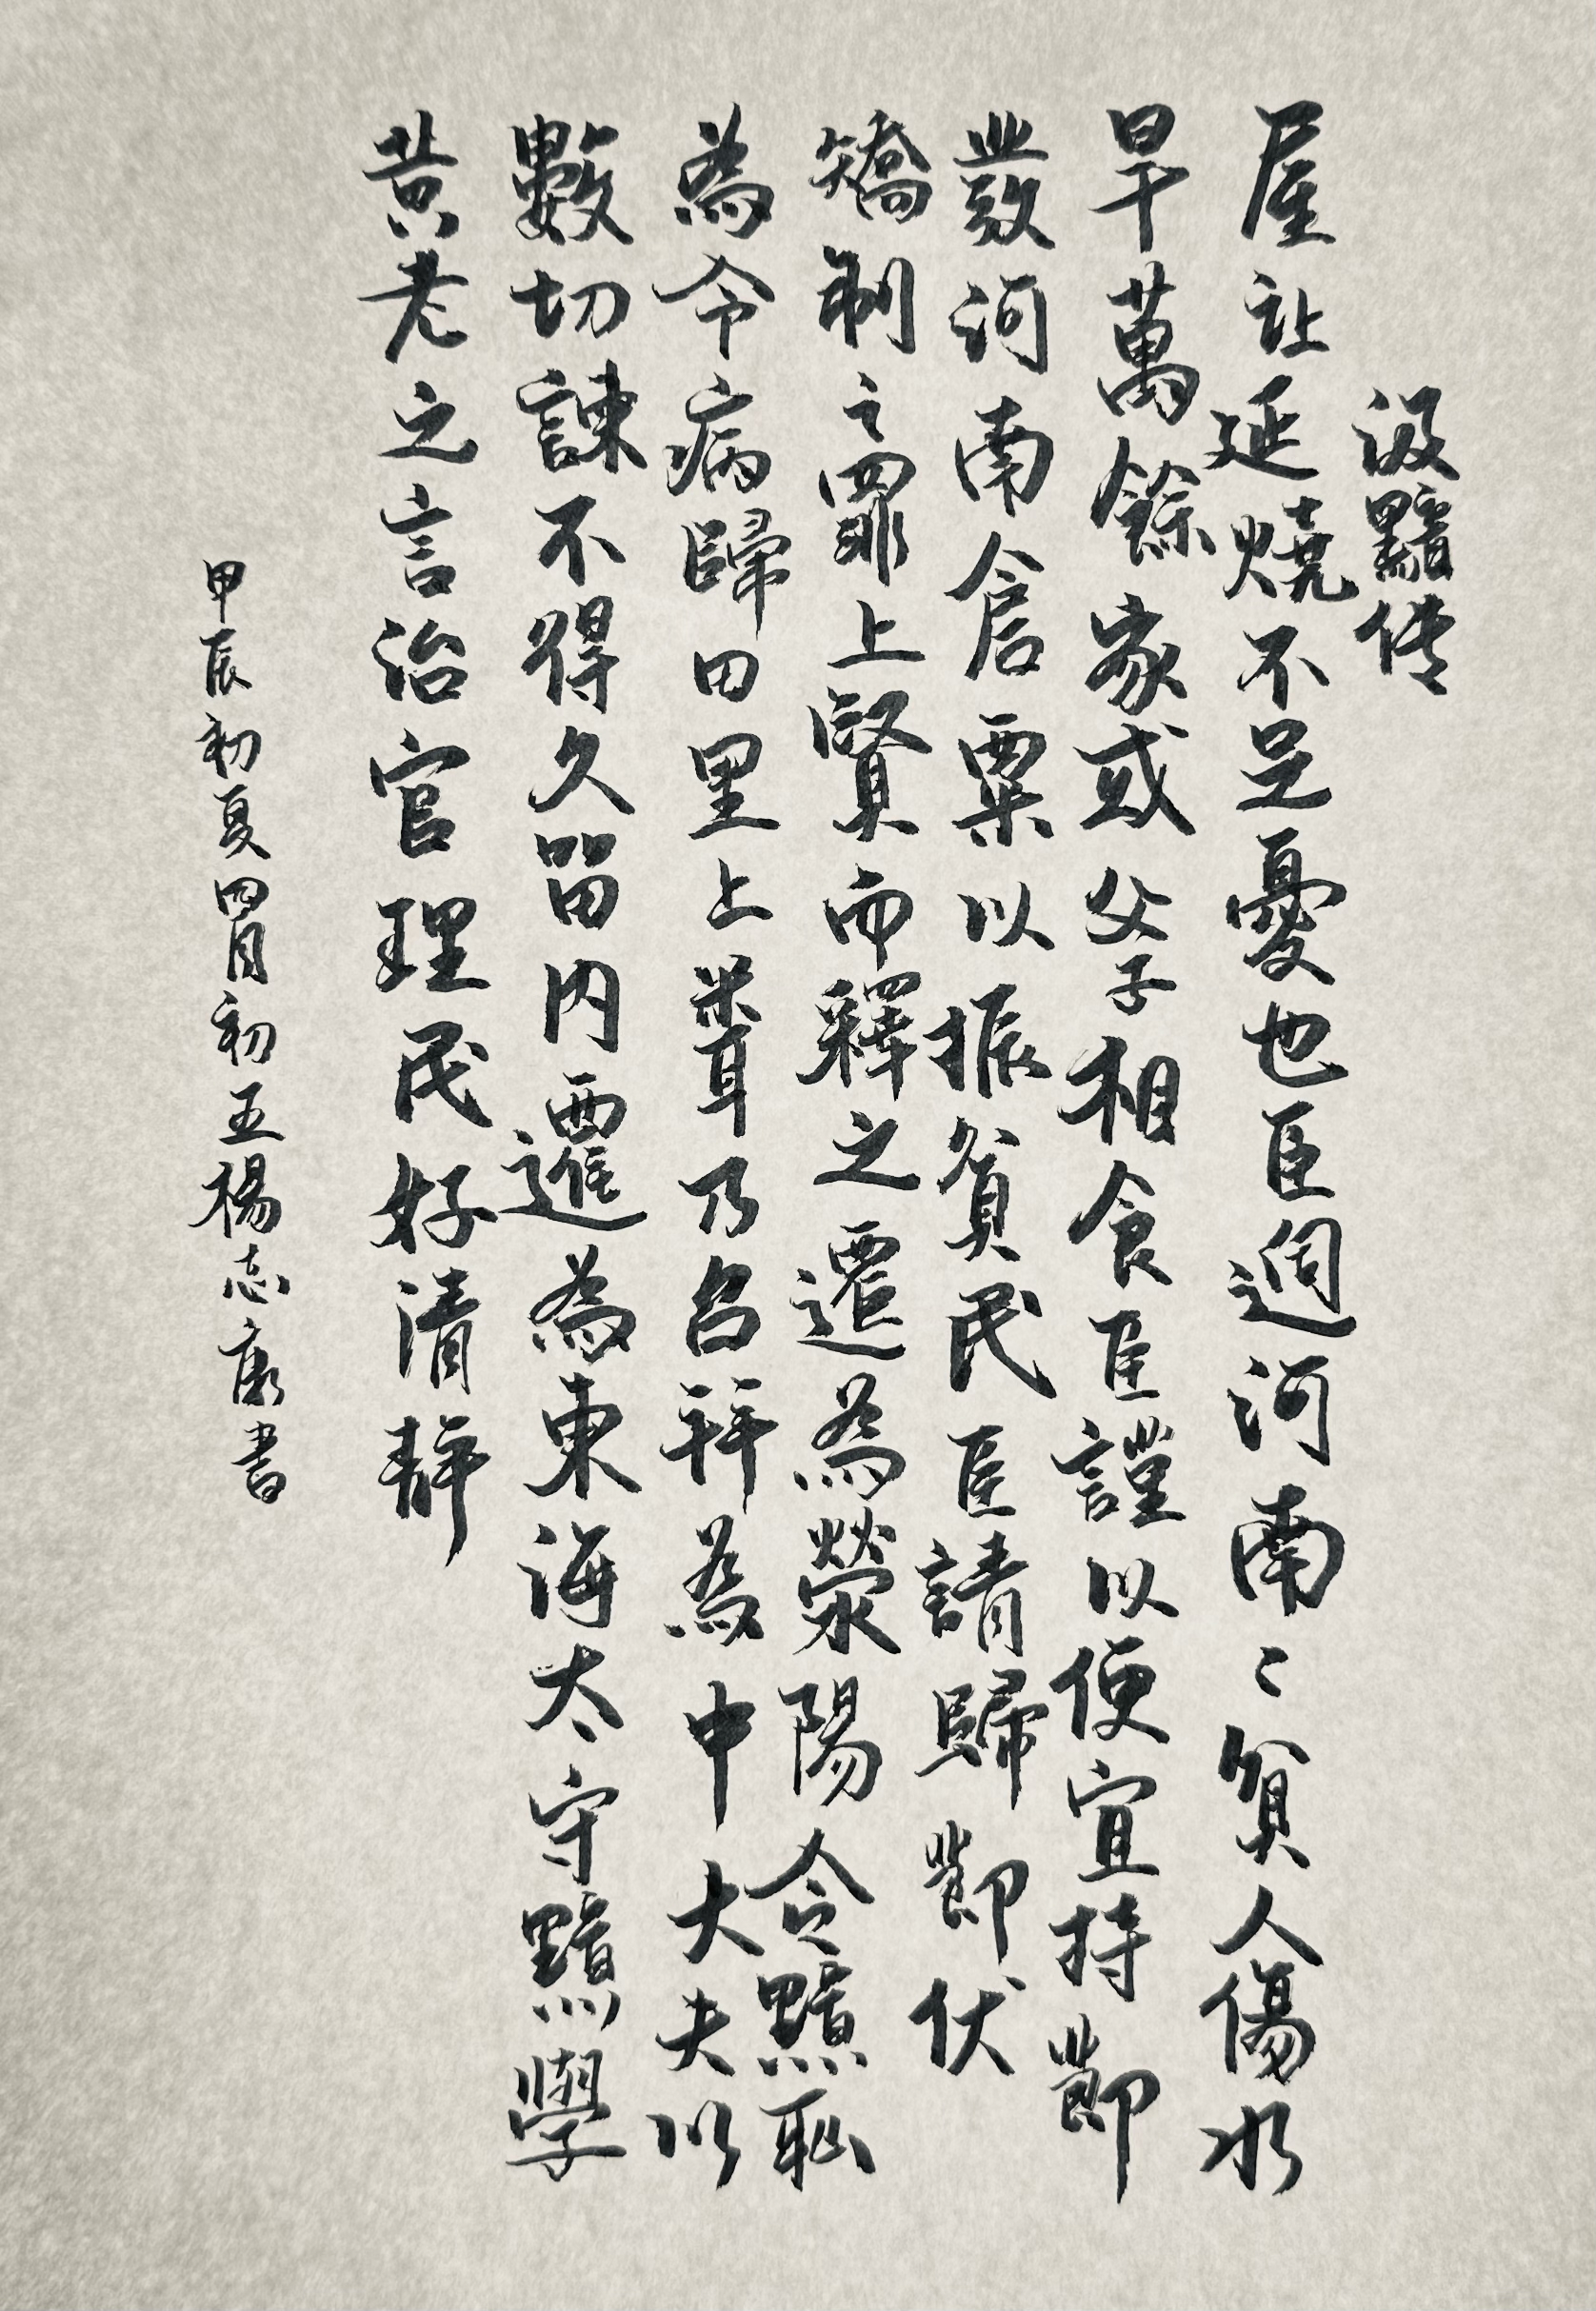 汲黯傳
屋比延燒不足憂也臣過河南〻貧人傷水
旱萬餘家或父子相食臣謹以便宜持節
發河南倉粟以振貧民臣請歸節伏
矯制之罪上賢而釋之遷為滎陽令黯恥
為令病歸田里上聞乃召拜為中大夫以
數切諫不得久留內遷為東海太守黯學
黃老之言治官理民好清靜
甲辰初夏四月初五楊志康書